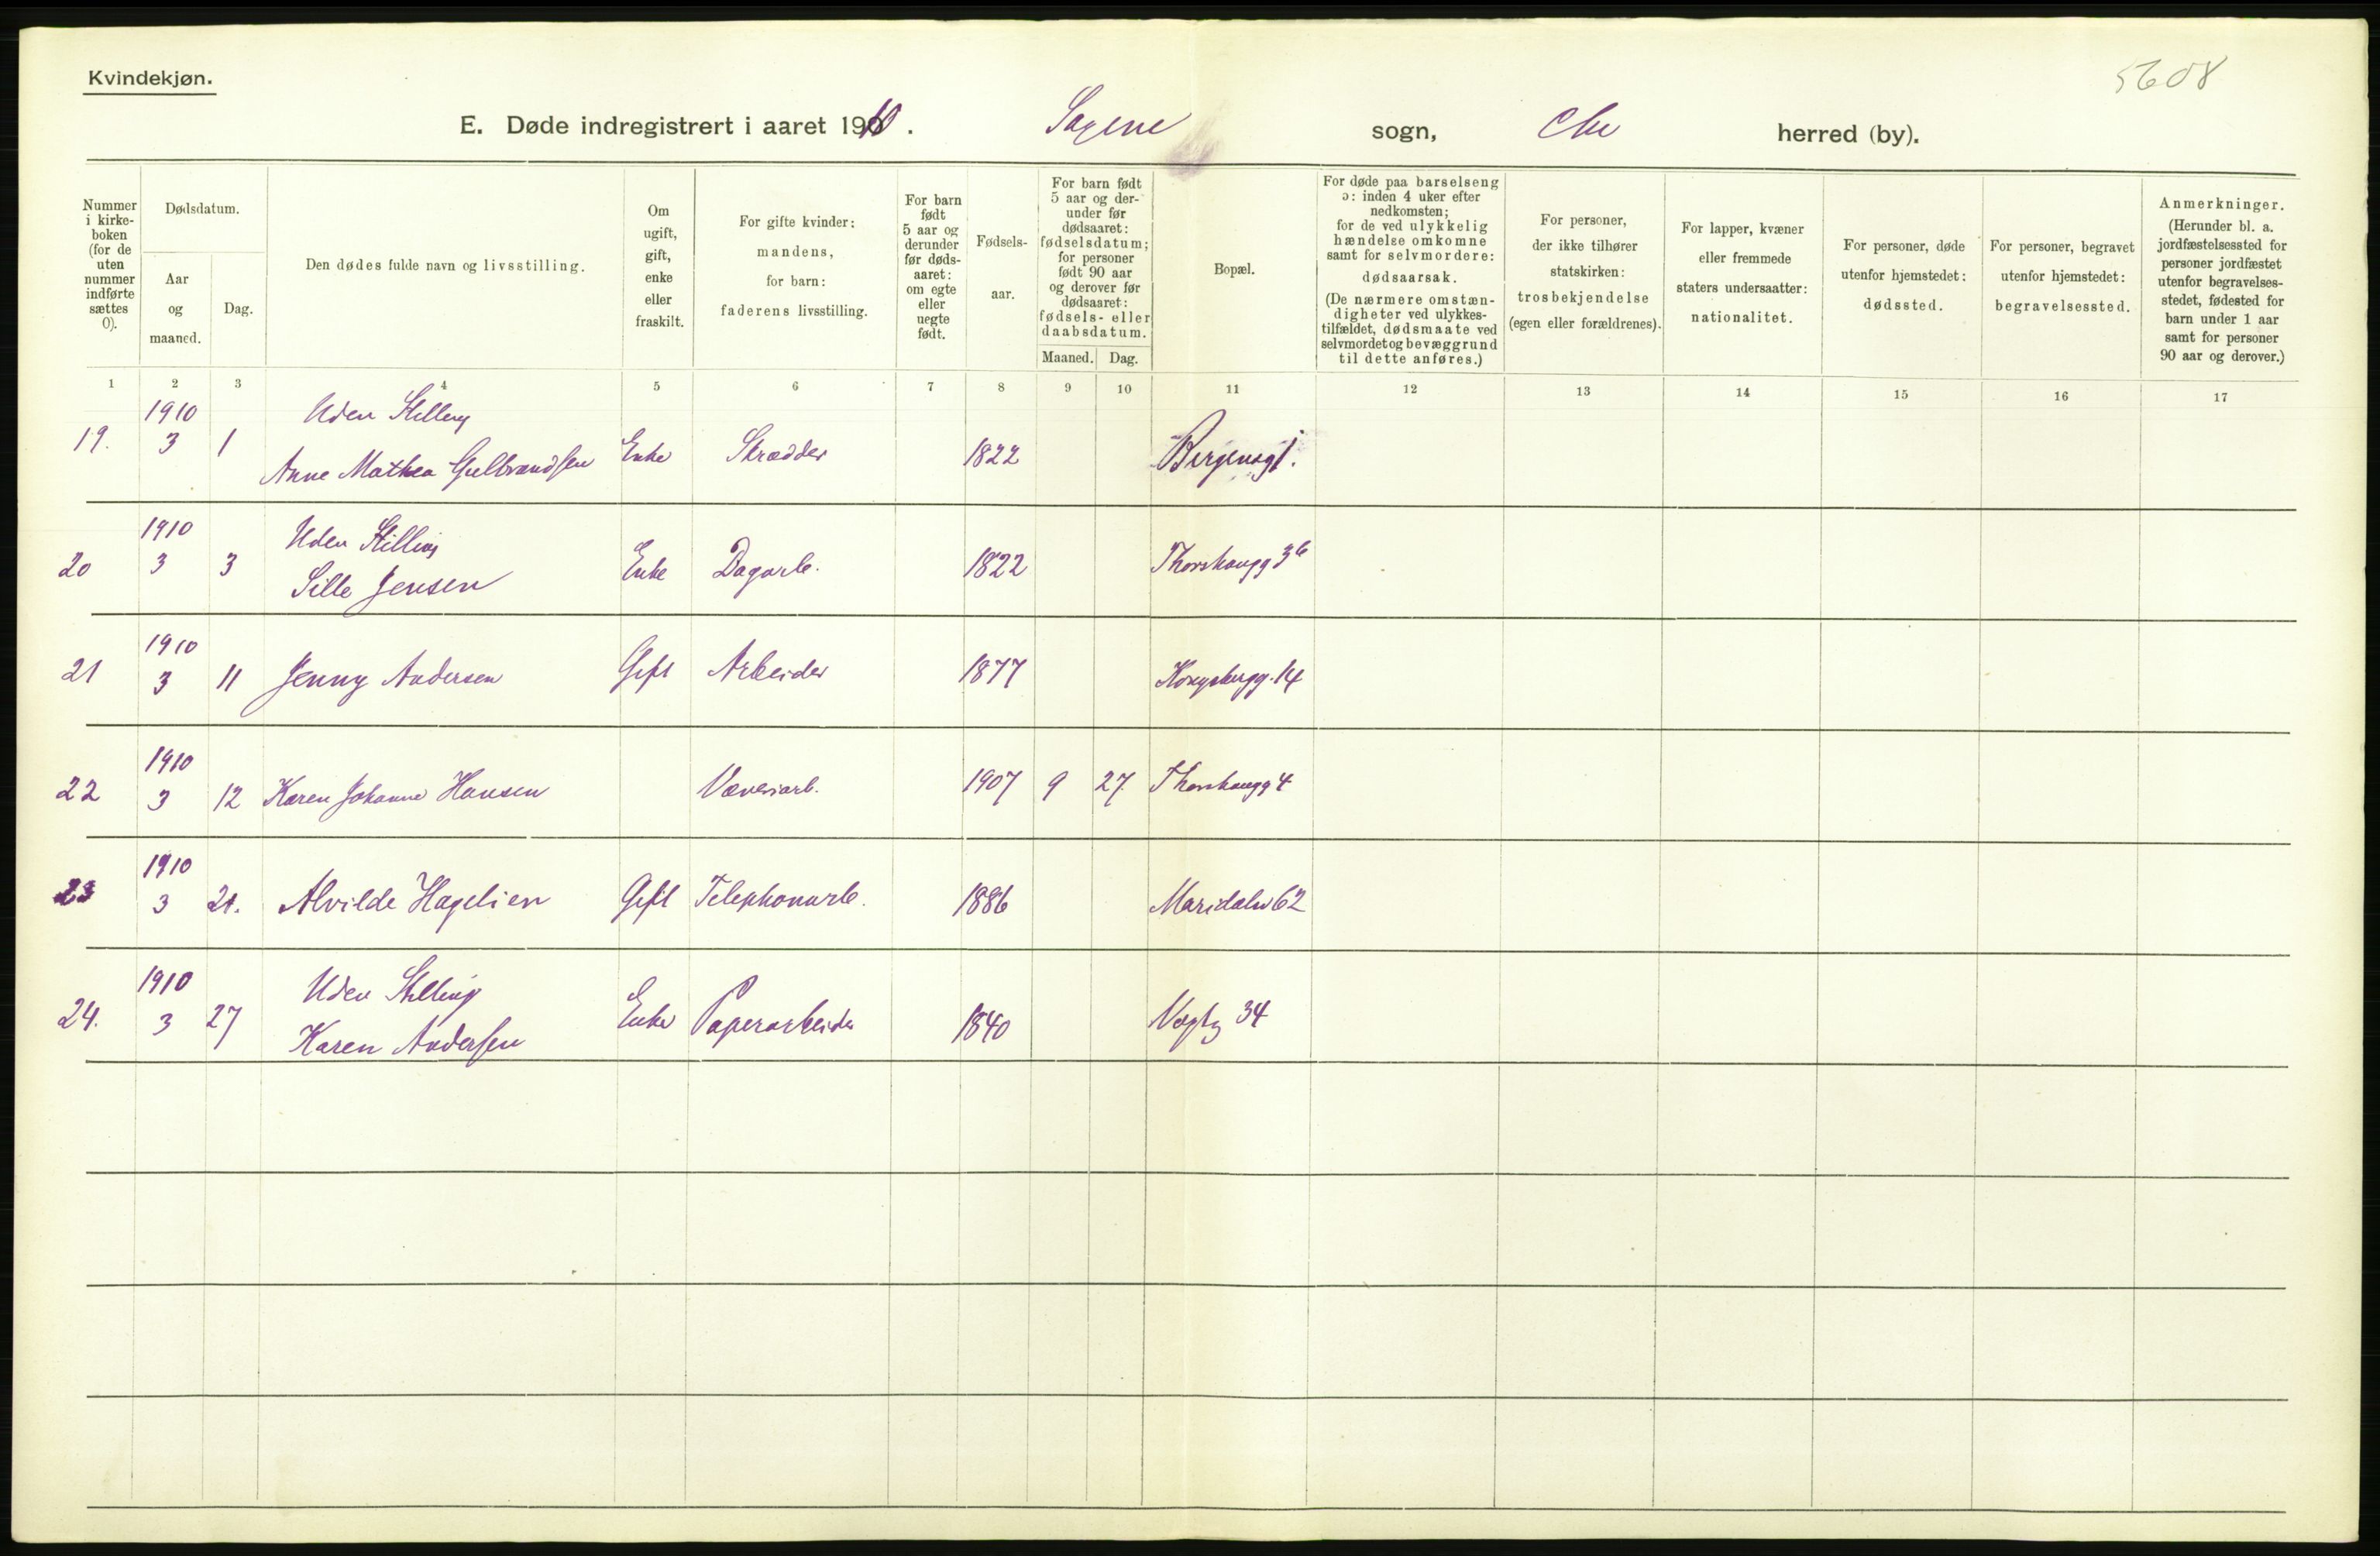 Kvindekjøn.
5608
E. Døde indregistrert i aaret 1910. Sagene sogn, Chr herred (by).
Nummer i kirke-boken (for de uten nummer indførte sættes 0).
Dødsdatum.
Aar og maaned.
Dag.
Den dødes fulde navn og livsstilling.
Om ugift, gift, enke eller fraskilt.
For gifte kvinder: mandens, for barn: faderens livsstilling.
For barn født 5 aar og derunder før døds-aaret: om egte eller uegte født.
Fødsels-aar.
For barn født 5 aar og der-under før dødsaaret: fødselsdatum; for personer født 90 aar og derover før dødsaaret: fødsels- eller daabsdatum.
Maaned. Dag.
Bopæl.
For døde paa barselseng ɔ: inden 4 uker efter nedkomsten; for de ved ulykkelig hændelse omkomne samt for selvmordere: dødsaarsak. (De nærmere omstæn-digheter ved ulykkes-tilfældet, dødsmaate ved selvmordet og bevæggrund til dette anføres.)
For personer, der ikke tilhører statskirken: trosbekjendelse (egen eller forældrenes).
For lapper, kvæner eller fremmede staters undersaatter: nationalitet.
For personer, døde utenfor hjemstedet: dødssted.
For personer, begravet utenfor hjemstedet: begravelsessted.
Anmerkninger. (Herunder bl. a. jordfæstelsessted for personer jordfæstet utenfor begravelses-stedet, fødested for barn under 1 aar samt for personer 90 aar og derover.)
1 2 3 4 5 6 7 8 9 10 11 12 13 14 15 16 17
1910 Uden Stilling
19. 3 1 Anne Mathea Gulbrandsen Enke Skrædder 1822 Bergensg 1.
1910 Uden Stilling
20 3 3 Sille Jensen Enke Dagarb. 1822 Thorshaugg 36
1910
21 3 11 Jenny Andersen Gift Arbeider 1877 Kongsbergg. 14
1910
22 3 12 Karen Johanne Hansen Væveriarb. 1907 9 27 Thorshaugg 4
1910
23 3 21. Alvilde Hagelien Gift Telephonarb. 1886 Maridalsv 62
1910 Uden Stilling
24. 3 27 Karen Andersen Enke Papirarbeider 1840 34